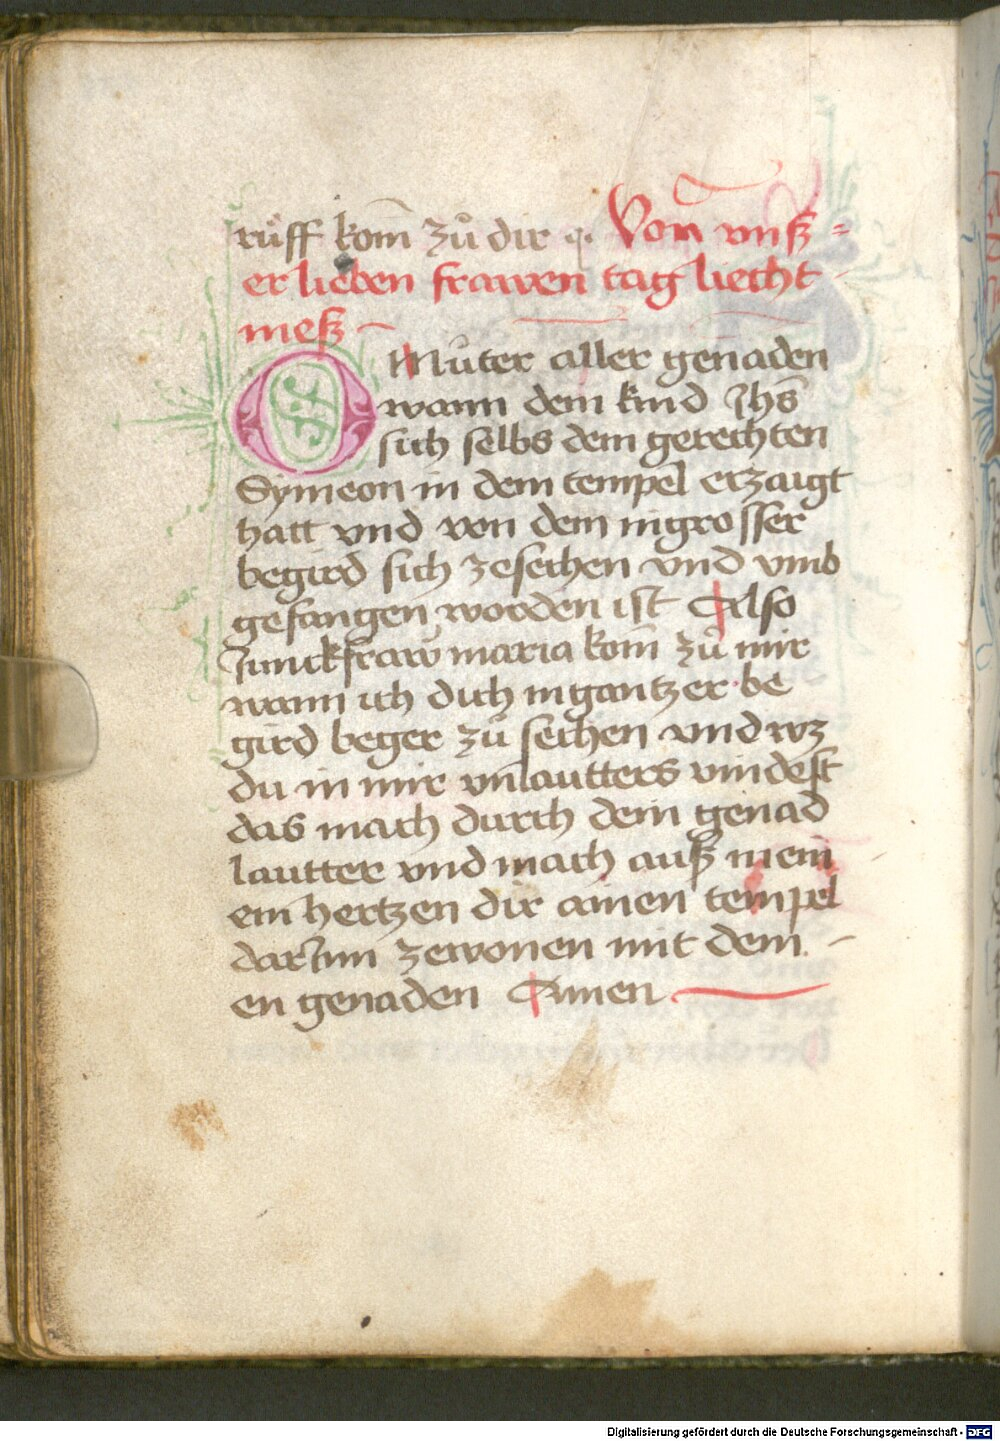 rüff kom̄ zů dir ꝛc. Von vnß=
er lieben frawen tag liecht
meß
O Můter aller genaden
wann dein kind Jhs̄
sich selbs dem gerechten
Symeon in dem tempel erzaigt
hatt vnd von dem ingrosser
begird sich zesechen vnd vmb
gefangen worden ist Also
Junckfraw maria kom̄ zů mir
wann ich dich ingantzer be
gird beger zů sechen vnd wz
du in mir vnlautters vindest
das mach durch dein genad
lautter vnd mach auß mein
em hertzen dir ainen tempel
darJnn zewonen mit dein
en genaden Amen
Digitalisierung gefördert durch die Deutsche Forschungsgemeinschaft - DFG